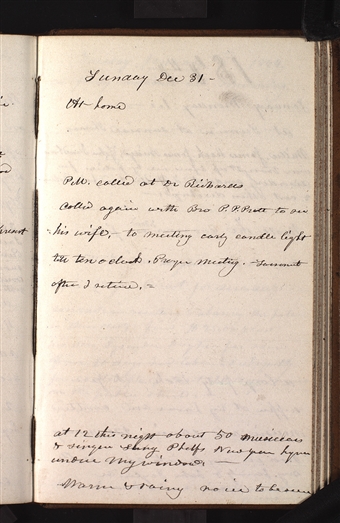 Sunday Dec 31 -
At home
P.M. called at Dr Richards
Called again with Bro P. P. Pratt to see
his wife, - to meeting early candle light
till ten o clock. Prayer Meeting. -
after I retired, =
at 12 this night about 50 musicians
& singer sung Phelps New year hymn
under My window,
Warm & rainy